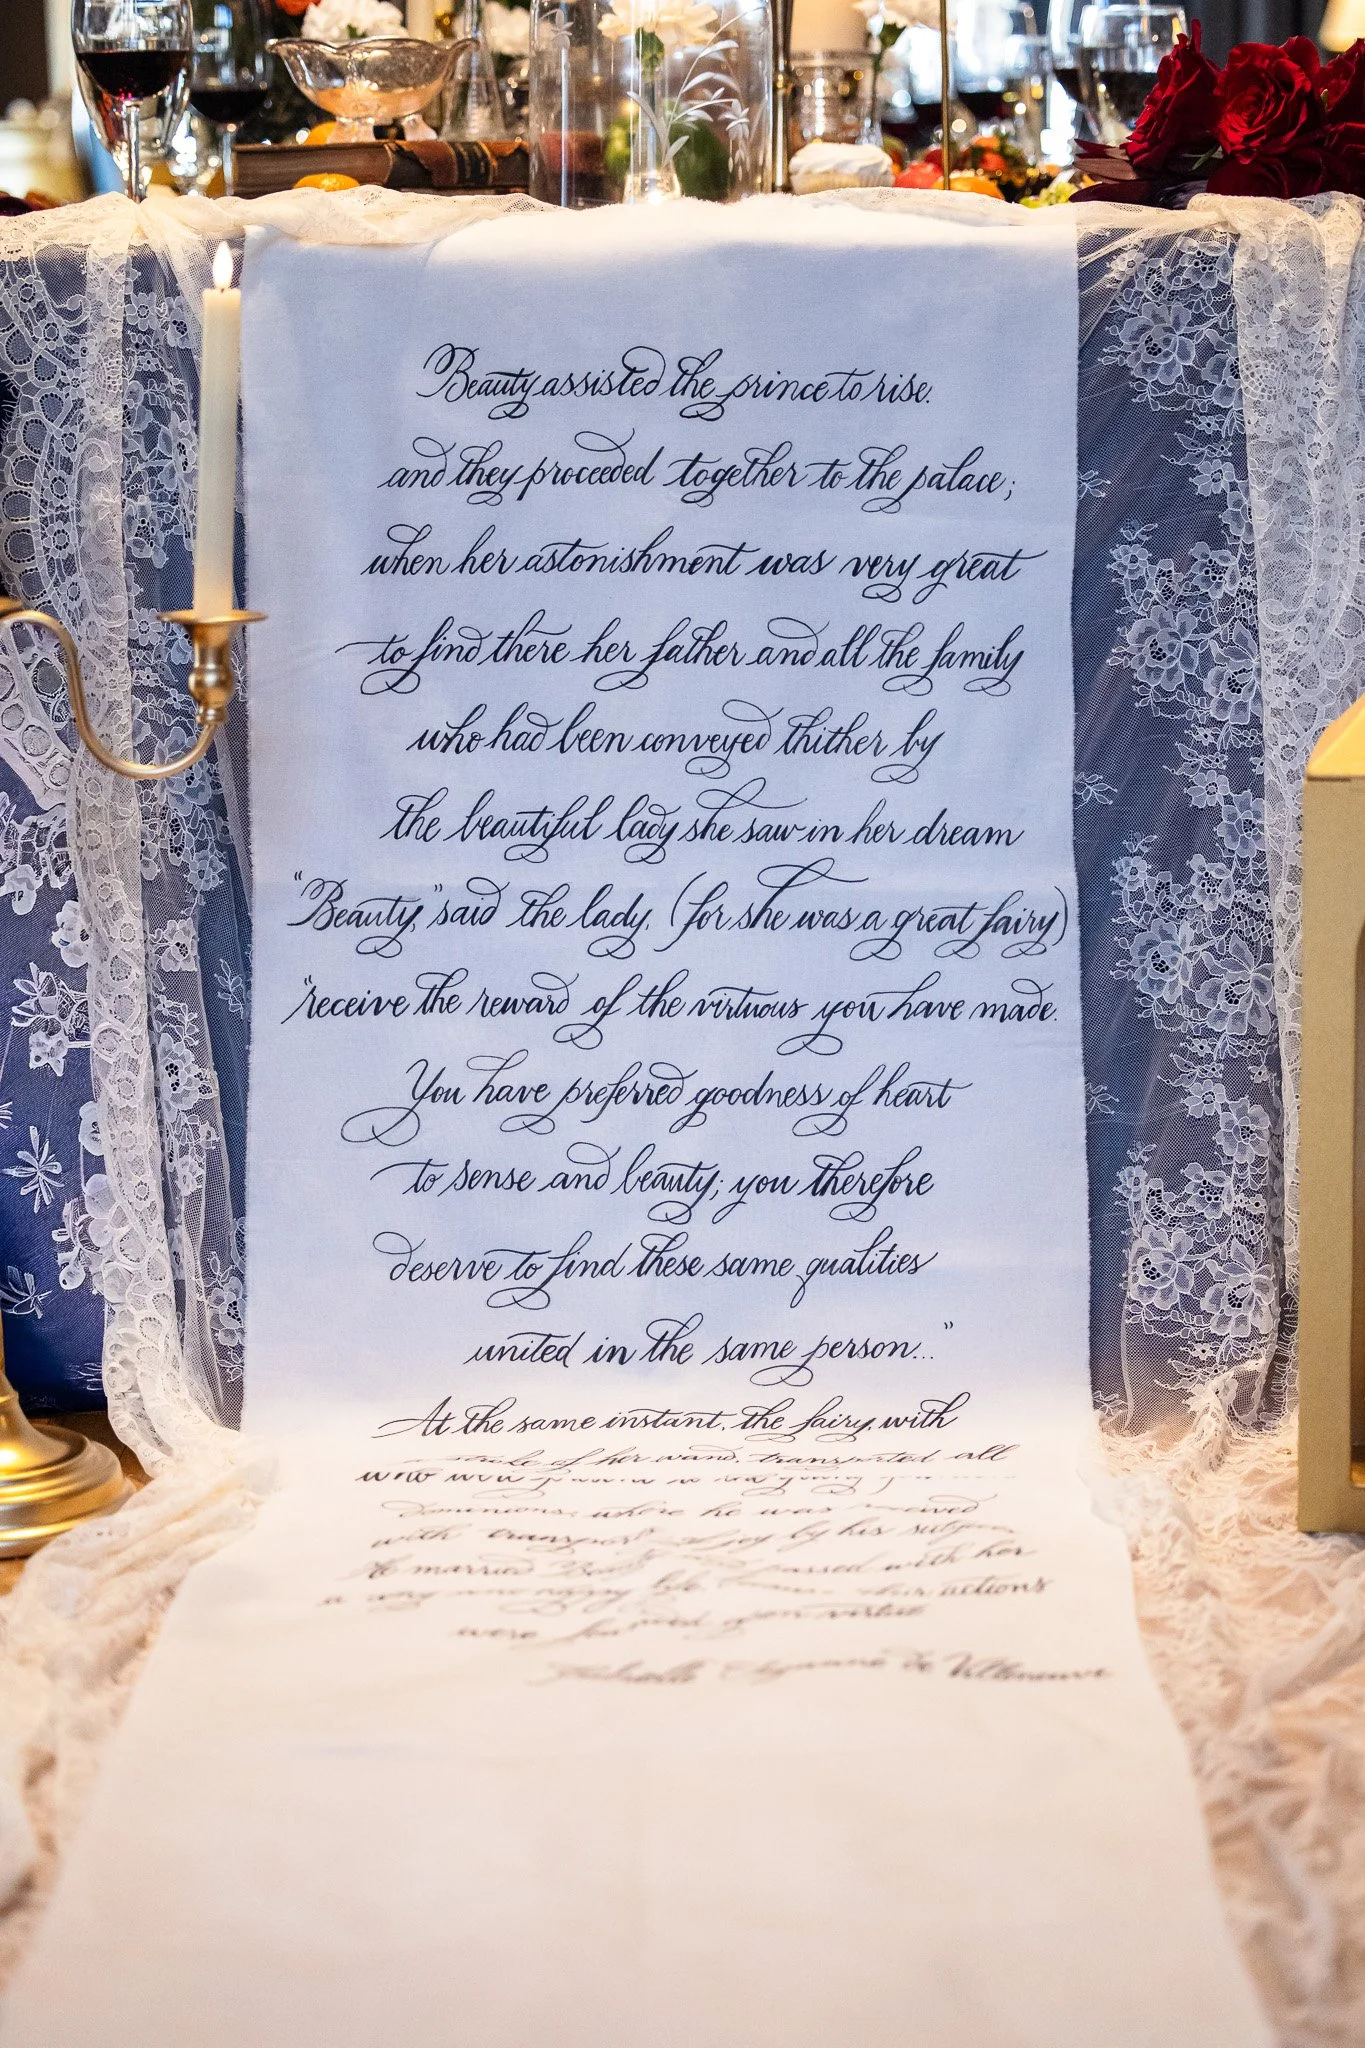 Beauty assisted the prince to rise.
and they proceeded together to the palace;
when her astonishment was very great
to find there her father and all the family
who had been conveyed thither by
the beautiful lady she saw in her dream
"Beauty," said the lady, (for she was a great fairy)
"receive the reward of the virtuous you have made.
You have preferred goodness of heart
to sense and beauty; you therefore
deserve to find these same qualities
united in the same person..."
At the same instant, the fairy, with
of her wand, transported all
who were
dominions, where he was received
with transport joy by his
He married passed with her
life. actions
were upon virtue
de Villeneuve